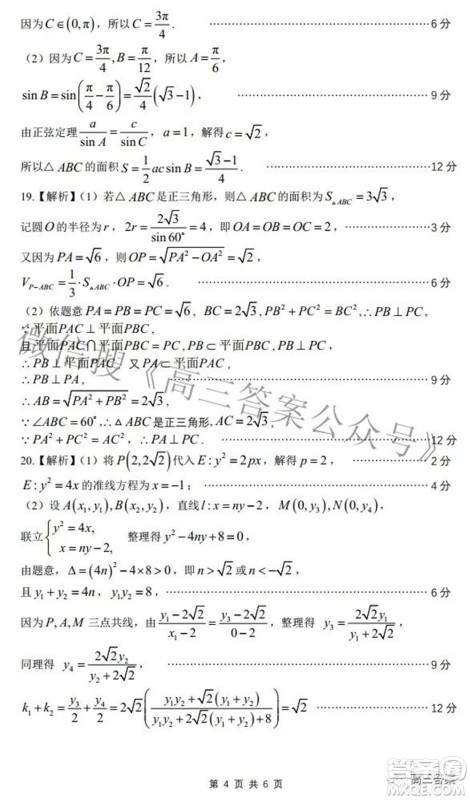 因为C∈(0,π)，所以C=3π/4． ……………………6分
（2）因为C=3π/4,B=π/12，所以A=π/6，
sinB=sin(π/4−π/6)=√2/4(√3−1)， ……………………9分
由正弦定理a/sinA=c/sinC，a=1，解得c=√2，
所以△ABC的面积S=1/2acsinB=(√3−1)/4． ……………………12分
19.【解析】（1）若△ABC是正三角形，则△ABC的面积为S△ABC=3√3，
记圆O的半径为r，2r=2√3/sin60°=4，即OA=OB=OC=2， ……………………3分
又因为PA=√6，则OP=√(PA²−OA²)=√2，
V_{P−ABC}=1/3·S△ABC·OP=√6． ……………………6分
（2）依题意PA=PB=PC=√6，BC=2√3,PB²+PC²=BC²,∴PB⊥PC，
∵平面PAC⊥平面PBC，
且平面PAC∩平面PBC=PC,PB⊂平面PBC，
∴PB⊥平面PAC 又PA⊂平面PAC，
∴PB⊥PA， ……………………9分
∴AB=√(PA²+PB²)=2√3，
∵∠ABC=60°,∴△ABC是正三角形,AC=2√3，
∵PA²+PC²=AC²，∴PA⊥PC． ……………………12分
20.【解析】（1）将P(2,2√2)代入E:y²=2px，解得p=2， ……………………2分
E:y²=4x的准线方程为x=−1； ……………………4分
（2）设A(x₁,y₁),B(x₂,y₂)，直线l:x=ny−2，M(0,y₃),N(0,y₄)，
联立{y²=4x, x=ny−2, 整理得y²−4ny+8=0，
由题意，Δ=(4n)²−4×8>0，即n>√2或n<−√2，
且y₁+y₂=4n，y₁y₂=8， ……………………6分
因为P,A,M三点共线，由(y₁−2√2)/(x₁−2)=(y₃−2√2)/(0−2)，整理得 y₃=2√2y₁/(y₁+2√2)，
同理得 y₄=2√2y₂/(y₂+2√2)， ……………………9分
k₁+k₂=y₃/2+y₄/2=2√2((y₁y₂+√2(y₁+y₂))/(y₁y₂+2√2(y₁+y₂)+8))=√2 ……………………12分
第4页共6页
微信搜《高三答案公众号》
高三答案
MXQE.COM